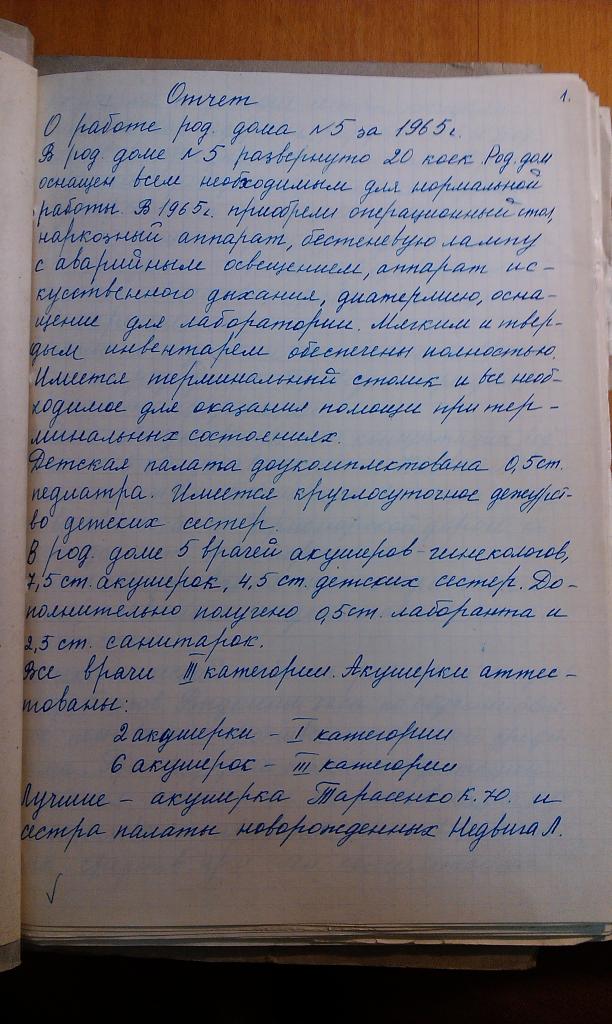 Отчет
1.
О работе род. дома №5 за 1965г.
В род. доме №5 развернуто 20 коек. Род. дом
оснащен всем необходимым для нормальной
работы. В 1965г. приобрели операционный стол,
наркозный аппарат, бестеневую лампу
с аварийным освещением, аппарат ис-
кусственного дыхания, диатермию, осна-
щение для лаборатории. Мягким и твер-
дым инвентарем обеспечены полностью.
Имеется терминальный столик и все необ-
ходимое для оказания помощи при тер-
минальных состояниях.
Детская палата доукомплектована 0,5 ст.
педиатра. Имеется круглосуточное дежурст-
во детских сестер.
В род. доме 5 врачей акушеров-гинекологов,
7,5 ст. акушерок, 4,5 ст. детских сестер. До-
полнительно получено 0,5 ст. лаборанта и
2,5 ст. санитарок.
Все врачи III категории. Акушерки аттес-
тованы:
2 акушерки - I категории
6 акушерок - III категории
Лучшие - акушерка Тарасенко К. Ю. и
сестра палаты новорожденных Недвига Л.